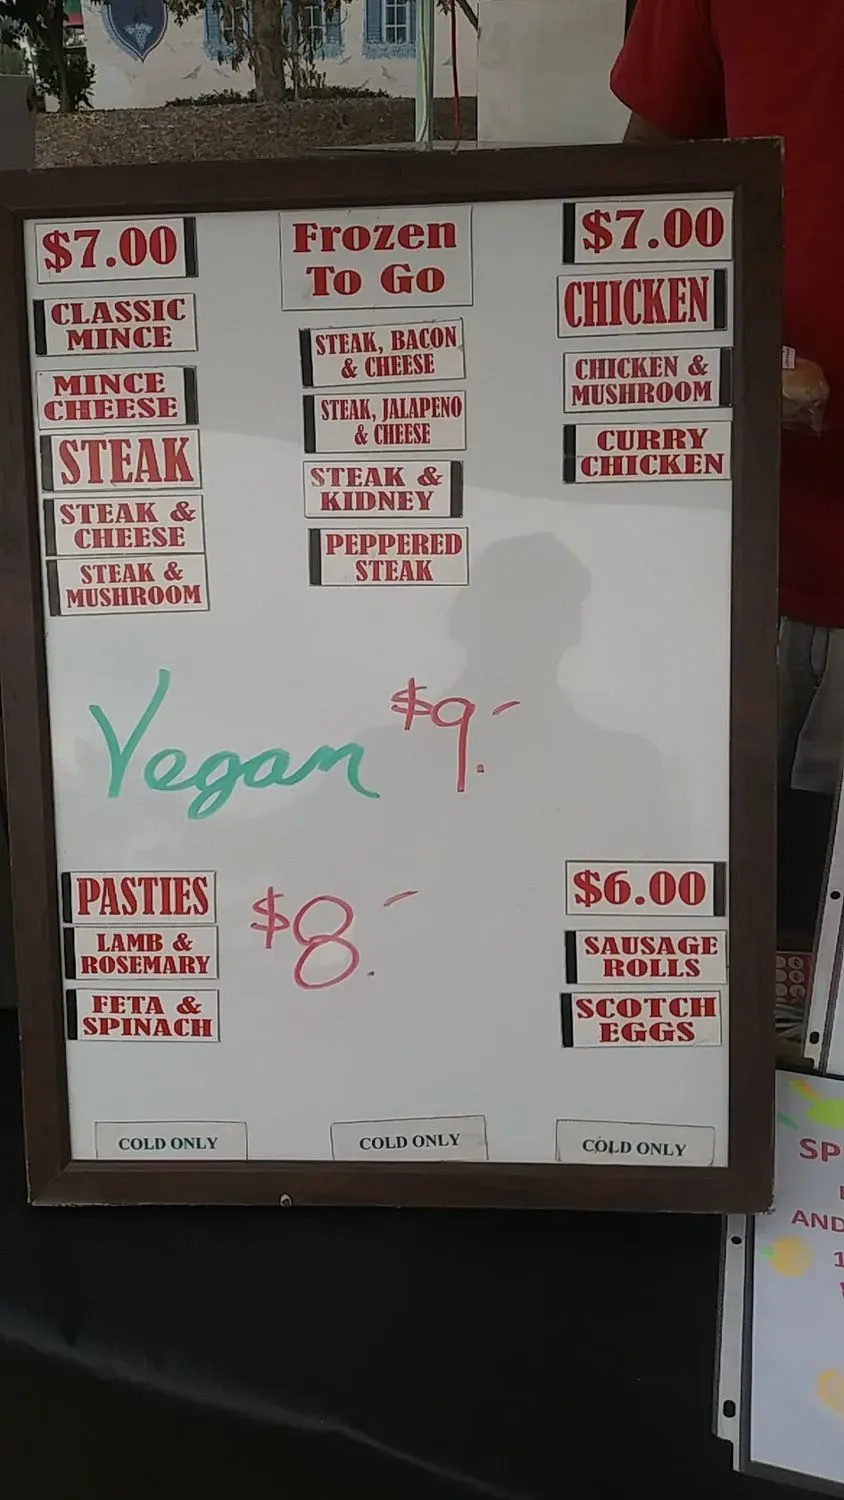 $7.00
CLASSIC
MINCE
MINCE
CHEESE
STEAK
STEAK &
CHEESE
STEAK &
MUSHROOM
Frozen
To Go
STEAK, BACON
& CHEESE
STEAK, JALAPENO
& CHEESE
STEAK &
KIDNEY
PEPPERED
STEAK
$7.00
CHICKEN
CHICKEN &
MUSHROOM
CURRY
CHICKEN
Vegan $9.-
PASTIES $8.-
LAMB &
ROSEMARY
FETA &
SPINACH
$6.00
SAUSAGE
ROLLS
SCOTCH
EGGS
COLD ONLY
COLD ONLY
COLD ONLY
SP
AND
1